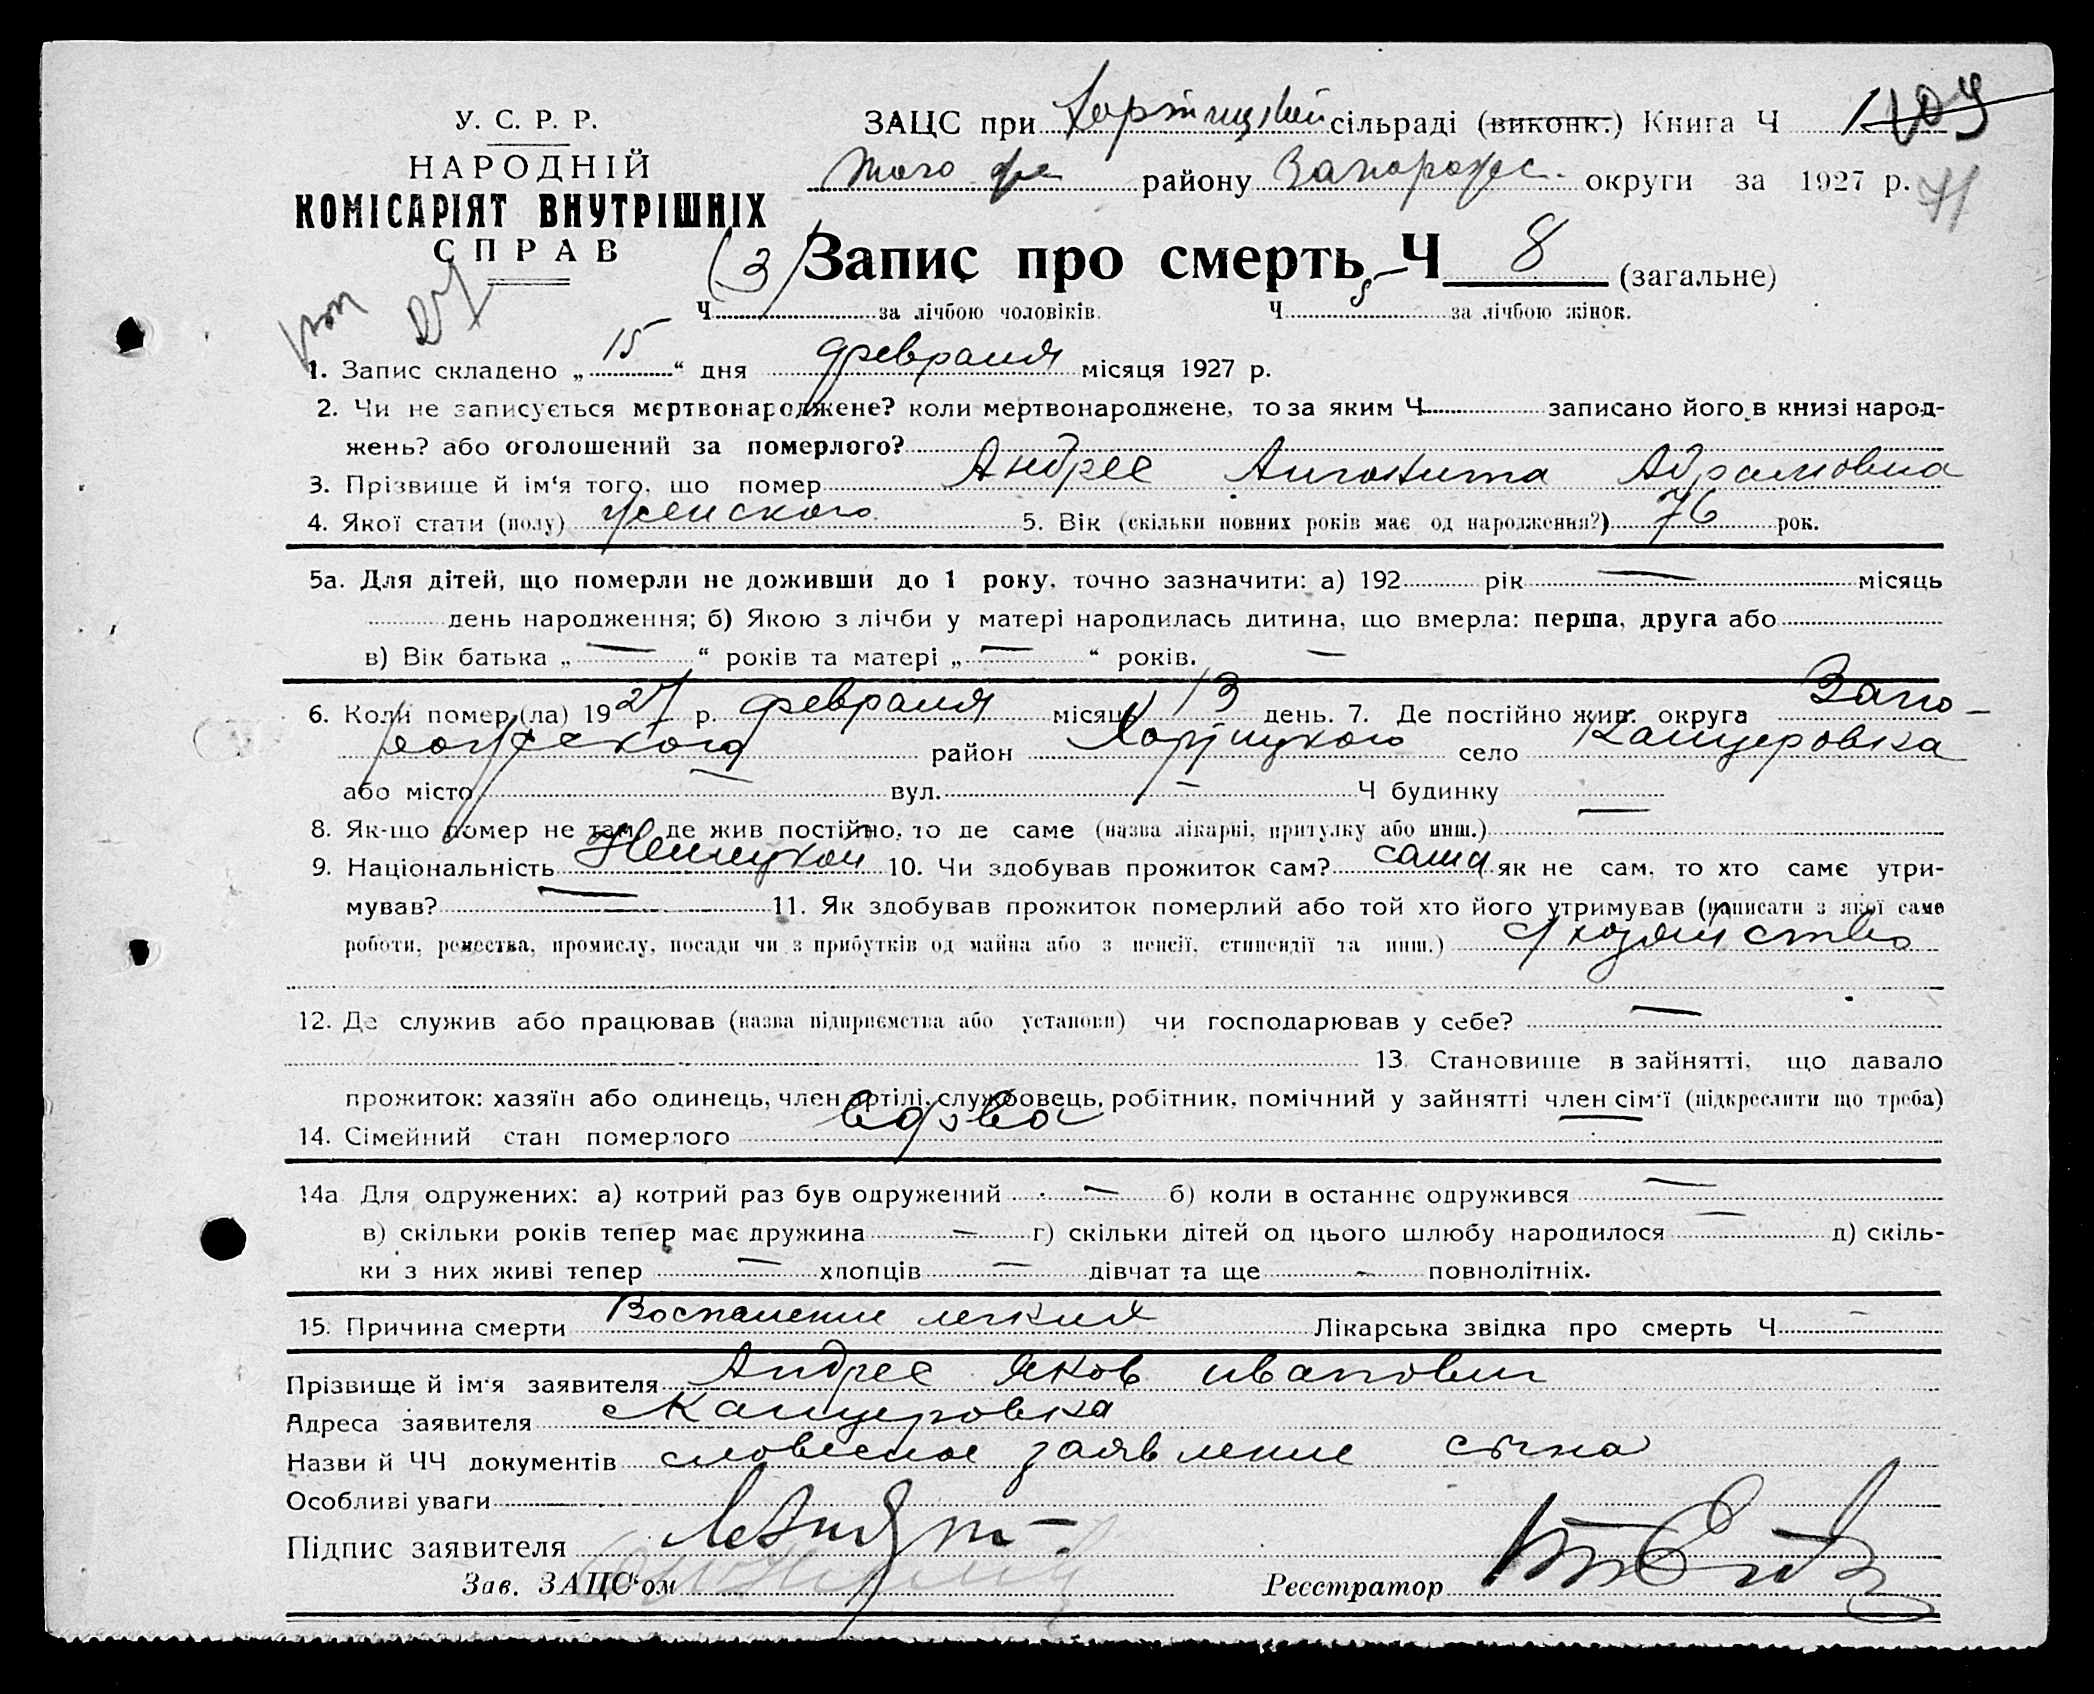 У. С. Р. Р.
НАРОДНІЙ
КОМІСАРІЯТ ВНУТРІШНІХ
СПРАВ
ЗАЦС при Хортицькій сільраді (виконк.) Книга Ч 1 109
того же району Запорожс. округи за 1927 р. 71
(3) Запис про смерть Ч 8 (загальне)
Ч за лічбою чоловіків. Ч за лічбою жінок.
1. Запис складено „ 15 “ дня февраля місяця 1927 р.
2. Чи не записується мертвонароджене? коли мертвонароджене, то за яким Ч записано його в книзі народ-
жень? або оголошений за померлого?
3. Прізвище й ім‘я того, що помер Андрес Аганита Абрамовна
4. Якої стати (полу) женского 5. Вік (скільки повних років має од народження?) 76 рок.
5а. Для дітей, що померли не доживши до 1 року, точно зазначити: а) 192 рік — місяць
день народження; б) Якою з лічби у матері народилась дитина, що вмерла: перша, друга або
в) Вік батька „ — “ років та матері „ — “ років. —
6. Коли помер (ла) 1927 р. февраля місяць 13 день. 7. Де постійно жив: округа Запо-
рожского район Хортицкого село Канцеровка
або місто — вул. — Ч будинку —
8. Як-що помер не там, де жив постійно, то де саме (назва лікарні, притулку або инш.)
9. Національність Немецкой 10. Чи здобував прожиток сам? сама як не сам, то хто саме утри-
мував? — 11. Як здобував прожиток померлий або той хто його утримував (написати з якої саме
роботи, ремества, промислу, посади чи з прибутків од майна або з пенсії, стипендії та инш.) с/хозяйство
12. Де служив або працював (назва підприємства або установи) чи господарював у себе? —
13. Становище в зайнятті, що давало
прожиток: хазяїн або одинець, член артілі, службовець, робітник, помічний у зайнятті член сім‘ї (підкреслити що треба)
14. Сімейний стан померлого вдова —
14а Для одружених: а) котрий раз був одружений — б) коли в останнє одружився —
в) скільки років тепер має дружина — г) скільки дітей од цього шлюбу народилося — д) скіль-
ки з них живі тепер — хлопців — дівчат та ще — повнолітніх.
15. Причина смерти Воспаление легких Лікарська звідка про смерть Ч —
Прізвище й ім‘я заявителя Андрес Яков Иванович
Адреса заявителя с Канцеровка
Назви й ЧЧ документів словесное заявление сына
Особливі уваги
Підпис заявителя
Зав. ЗАЦС‘ом Реєстратор